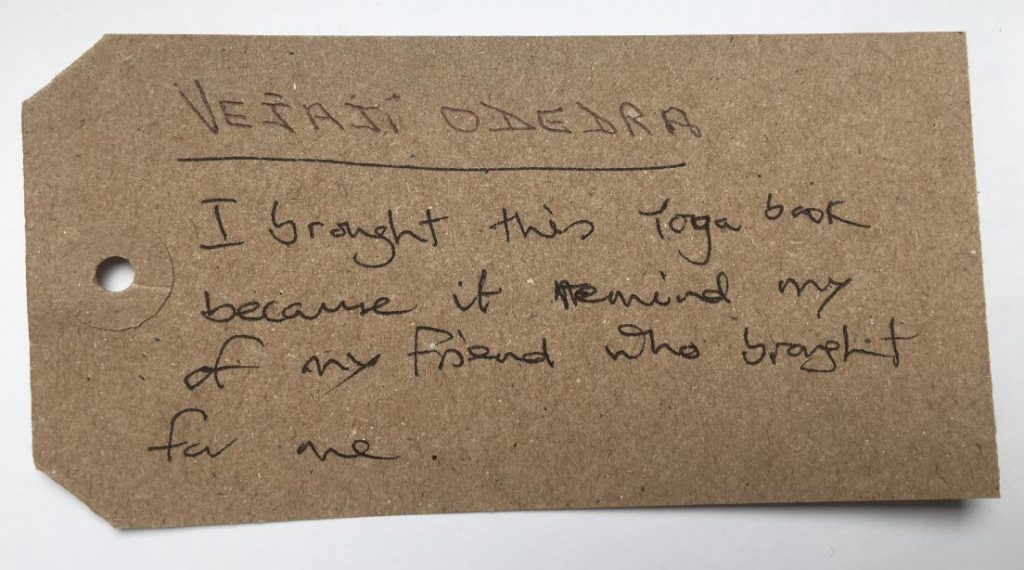 VEJAJI ODEDRA
I brought this Yoga book
because it remind my
of my friend who brought
for me.